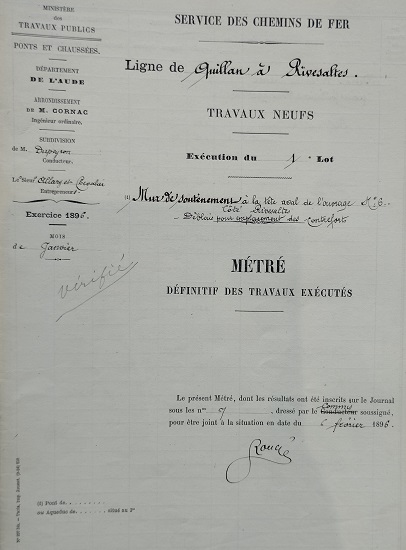 MINISTÈRE
des
TRAVAUX PUBLICS
PONTS ET CHAUSSÉES.
DÉPARTEMENT
DE L'AUDE
ARRONDISSEMENT
DE M. CORNAC
Ingénieur ordinaire.
SUBDIVISION
de M.
Conducteur.
Le Sieur Allary et
Entrepreneur
Exercice 1896.
MOIS
de Janvier
vérifié
SERVICE DES CHEMINS DE FER
Ligne de Quillan à Rivesaltes.
TRAVAUX NEUFS
Exécution du 1 Lot
(1) Mur de soutènement à la tête aval de l'ouvrage N° 6
Côté Rivesaltes
Déblais pour emplacement des contreforts
MÉTRÉ
DÉFINITIF DES TRAVAUX EXÉCUTÉS
Le présent Métré, dont les résultats ont été inscrits sur le Journal
Commis
sous les nos 7, dressé par le Conducteur soussigné,
pour être joint à la situation en date du février 1896.
Rougé
(1) Pont de
ou Aqueduc de situé au P